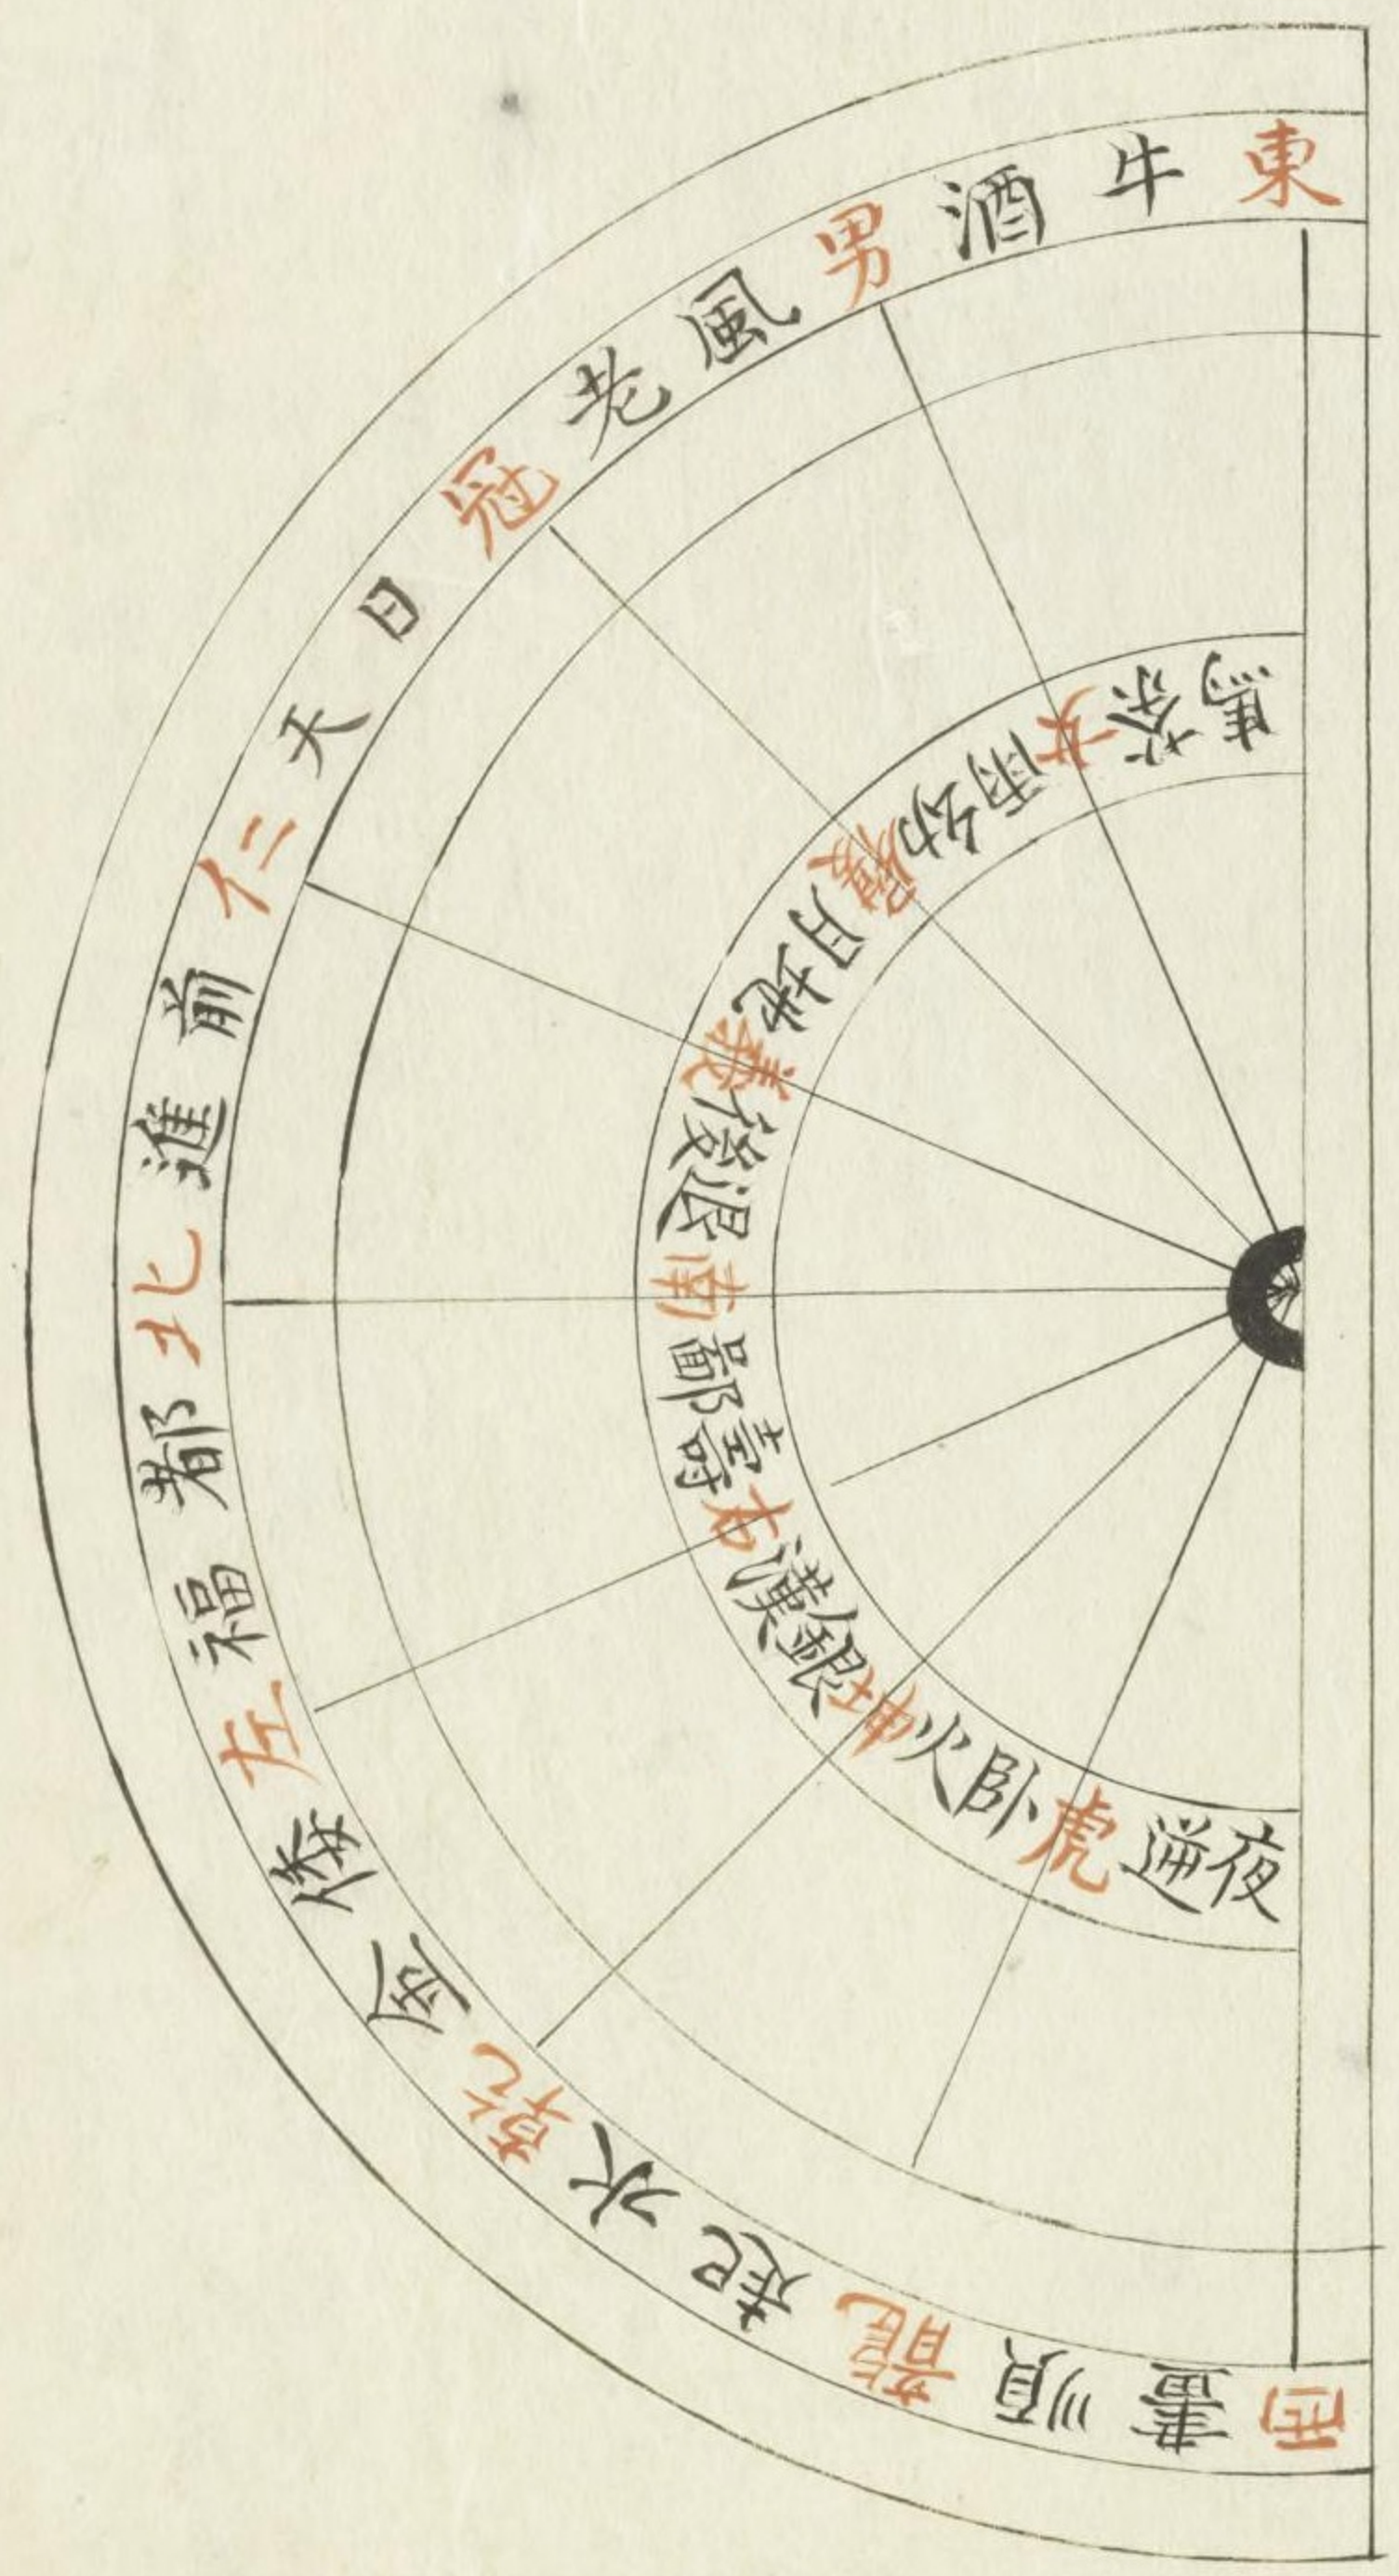 東牛酒男風老冠日天仁前進北都福左倭金乾水起龍順晝西
馬茶女雨幼履月地義後退南鄙壽右漢銀坤火臥虎逆夜